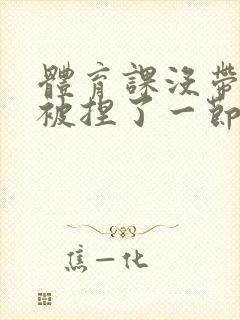 體育課沒帶
被捏了一節
焦一化